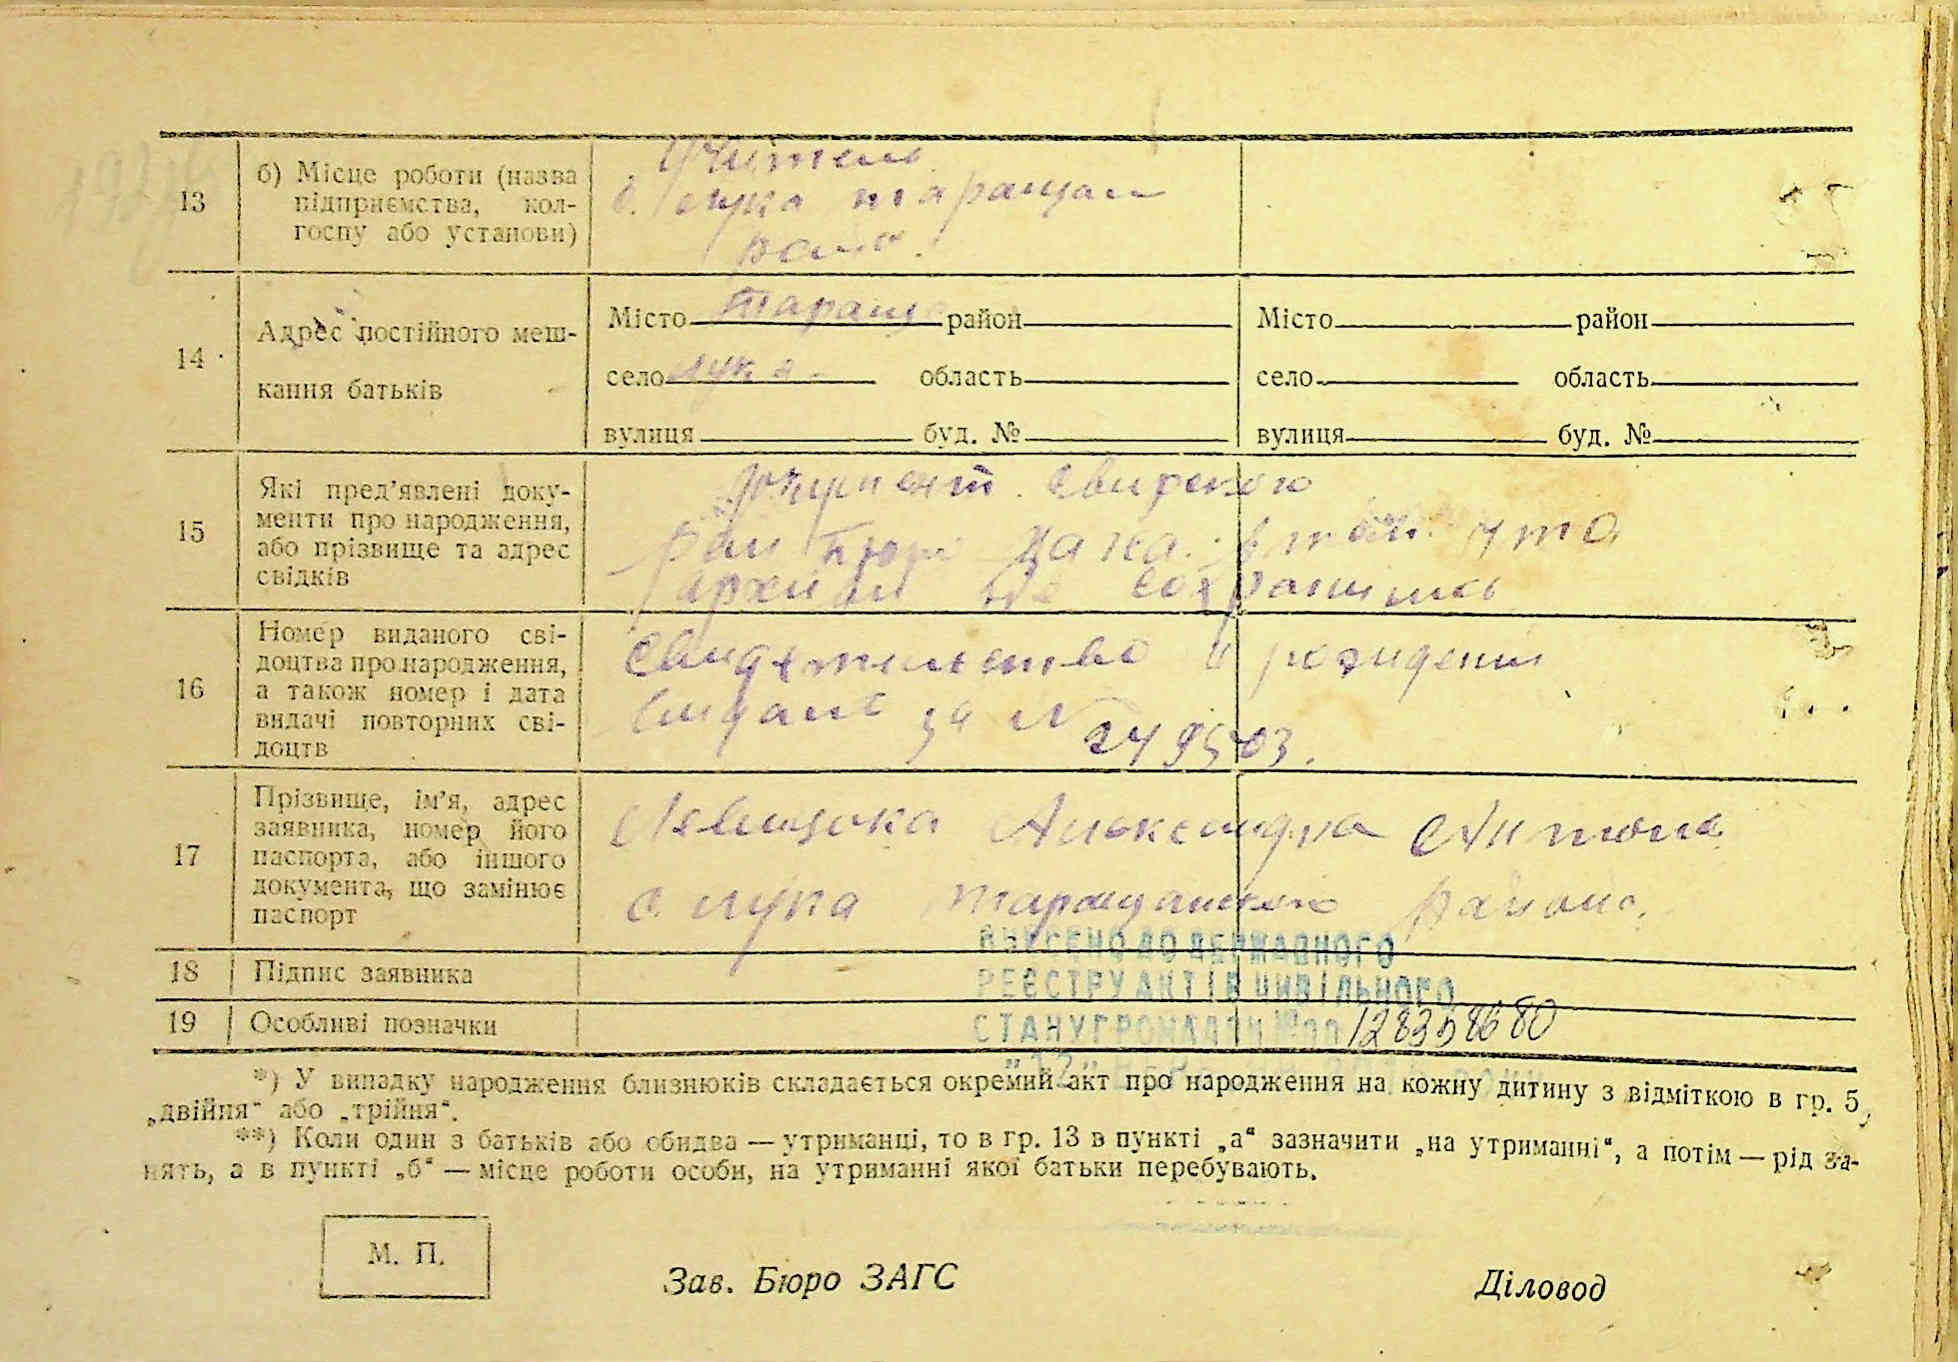 13
б) Місце роботи (назва
підприємства, кол-
госпу або установи)
Учитель
с. Лука таращан
14
Адрес постійного меш-
кання батьків
Місто Тараща район
село Лука область
вулиця буд. №
Місто район
село область
вулиця буд. №
15
Які пред’явлені доку-
менти про народження,
або прізвище та адрес
свідків
документ
рай бюро что
архивы не сохранились
16
Номер виданого сві-
доцтва про народження,
а також номер і дата
видачі повторних сві-
доцтв
Свидетельство о рождении
за № 249503.
17
Прізвище, ім’я, адрес
заявника, номер його
паспорта, або іншого
документа, що замінює
паспорт
Александра Антона
с. Лука Таращанского района.
18
Підпис заявника
19
Особливі позначки
ВНЕСЕНО ДО ДЕРЖАВНОГО
РЕЄСТРУ АКТІВ ЦИВІЛЬНОГО
СТАНУ ГРОМАДЯН №00
*) У випадку народження близнюків складається окремий акт про народження на кожну дитину з відміткою в гр. 5
„двійня“ або „трійня“.
**) Коли один з батьків або обидва — утриманці, то в гр. 13 в пункті „а“ зазначити „на утриманні“, а потім — рід за-
нять, а в пункті „б“ — місце роботи особи, на утриманні якої батьки перебувають.
М. П.
Зав. Бюро ЗАГС
Діловод